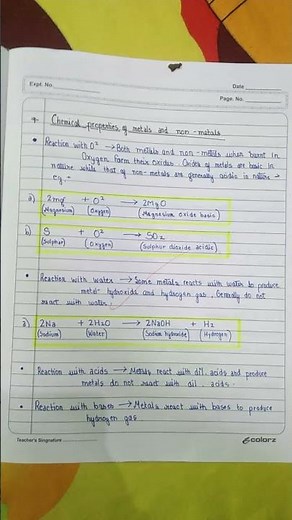 Expt. No.
Date
Page. No.
* Chemical properties of metals and non-metals
• Reaction with O² → Both metals and non-metals when burnt in
Oxygen form their oxides. Oxides of metals are basic in
nature while that of non-metals are generally acidic in nature →
eg -
a) 2mg + O² → 2MgO
(Magnesium) (Oxygen) (Magnesium Oxide basic)
b) S + O² → SO2
(Sulpher) (Oxygen) (Sulphur dioxide acidic)
• Reaction with water → Some metals reacts with water to produce
metal hydroxids and hydrogen gas. Generally do not
react with water.
a) 2Na + 2H2O → 2NaOH + H2
(Sodium) (Water) (Sodium hydroxide) (Hydrogen)
• Reaction with acids → Metals react with dil. acids and produce
metals do not react with dil. acids.
• Reaction with bases → Metals react with bases to produce
hydrogen gas
Teacher's Singnature
colorz